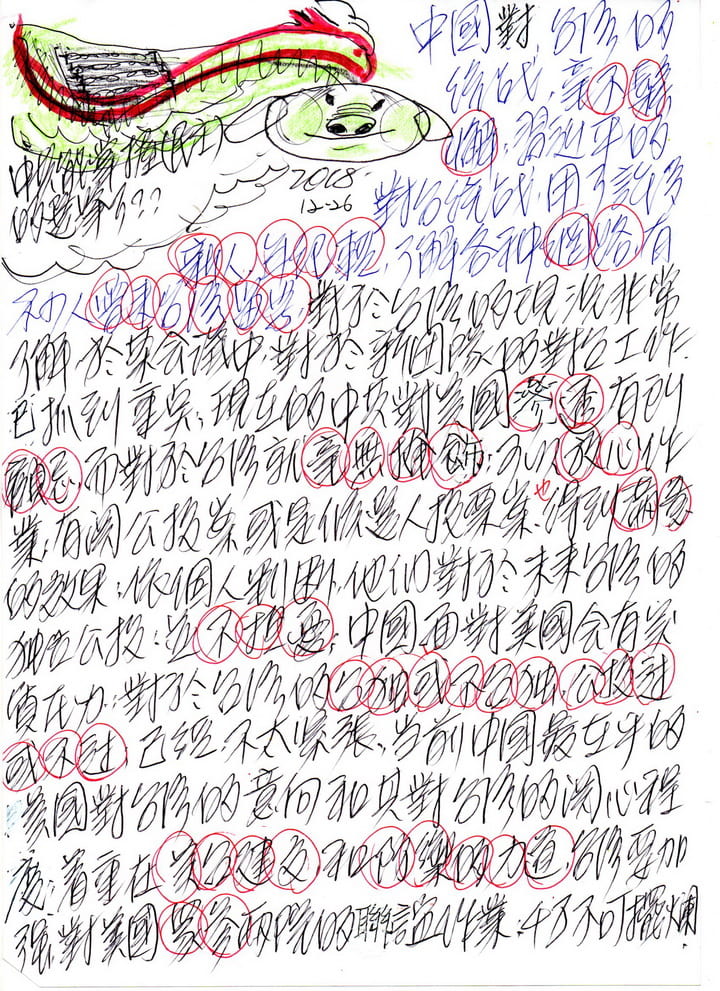 中國對台灣的
統戰,毫不鬆
懈,習近平的
對台統戰,用了許多
新人,年輕
了解各種網路,有
不少人曾來台灣
對於台灣的現況非常
了解,於某會議中,對於新團隊的對台工作
已抓到重點,現在的中共對美國參眾有所
顧忌,而對於台灣就毫無掩飾
放心作
業,有關公投案或是候選人投票案,也得到
的效果,依個人判斷,他們對於未來台灣的
独立公投,並不担憂,中國面對美國会有潛
在力,對於台灣的台独或不台独,公投过
或不过,已經不太緊張,當前中國最在乎的
美國對台灣的意向和其對台灣的関心程
度,着重在美台建交和防禦的力道,台灣要加
强對美國眾参兩院的聯誼作業,千万不可擺爛
2018
12-26
中共能掌握(民主)
的選舉了??